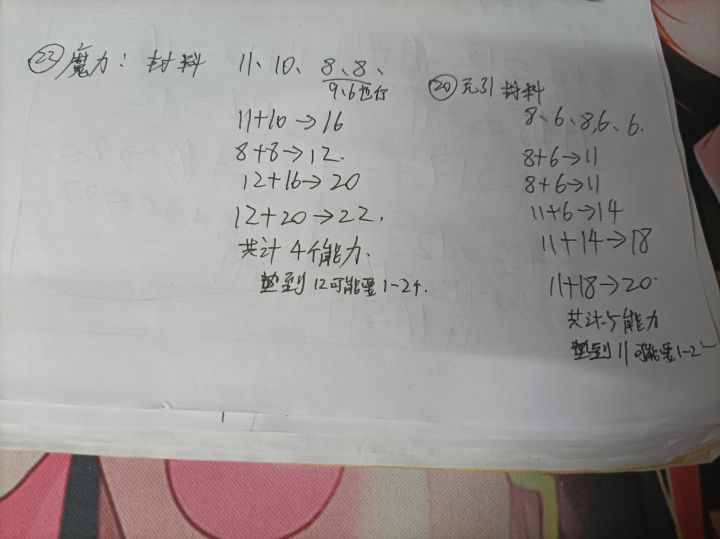 ㉒魔力：封料 11、10、8、8、
9、6也行
11+10→16
8+8→12.
12+16→20
12+20→22.
共计4个能力.
垫到12可能要1-2个.
⑳无引封料
8、6、8,6、6.
8+6→11
8+6→11
11+6→14
11+14→18
11+18→20.
共计5个能力
垫到11可能要1-2个